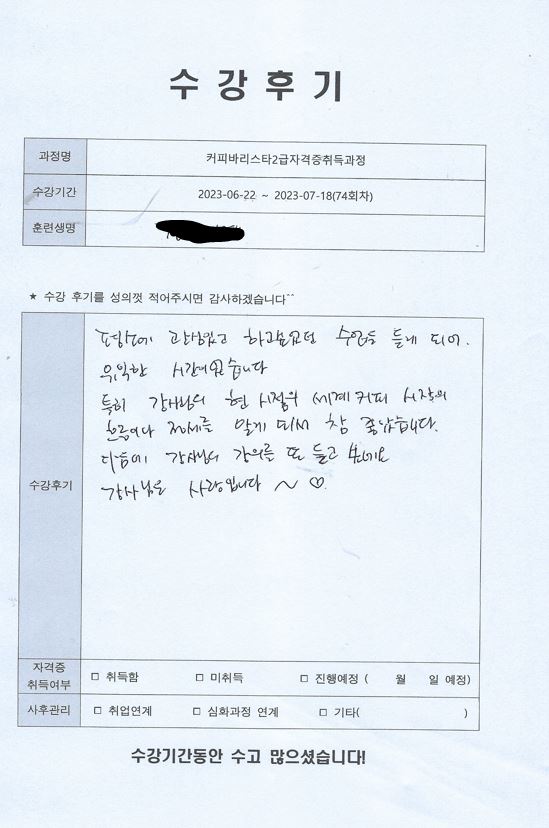 수강후기
과정명 커피바리스타2급자격증취득과정
수강기간 2023-06-22 ~ 2023-07-18(74회차)
훈련생명
★ 수강 후기를 성의껏 적어주시면 감사하겠습니다^^
수강후기
평소에 관심있고 하고싶었던 수업을 듣게 되어.
유익한 시간이었습니다
특히 강사님의 현 시점의 세계커피 시장의
흐름이나 정세를 알게 되서 참 좋았습니다.
다음에 강사님의 강의를 또 듣고
강사님은 사랑입니다 ~ ♡.
자격증 취득여부 □ 취득함 □ 미취득 □ 진행예정 ( 월 일 예정)
사후관리 □ 취업연계 □ 심화과정 연계 □ 기타( )
수강기간동안 수고 많으셨습니다!